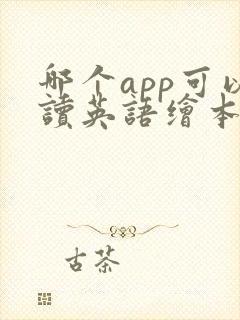 哪个app可以
讀英語繪本
古茶